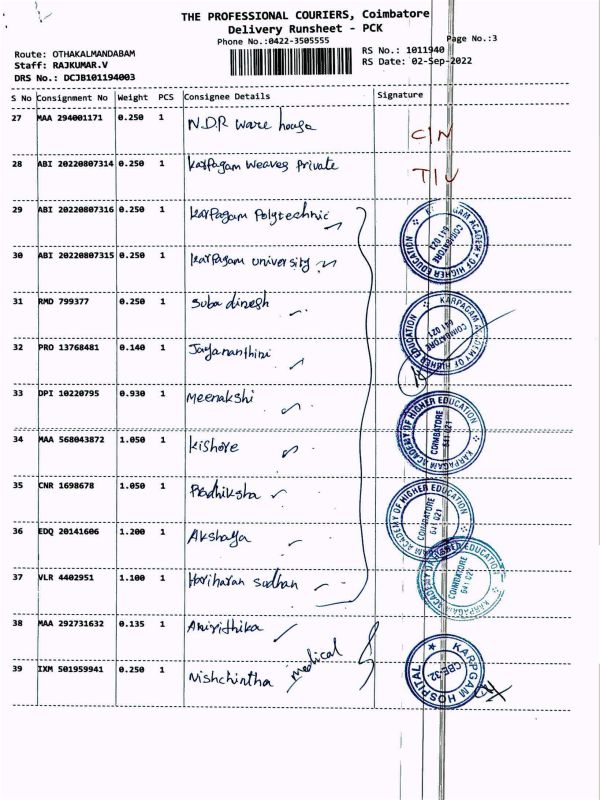 THE PROFESSIONAL COURIERS, Coimbatore
Delivery Runsheet - PCK
Phone No.:0422-3505555
Page No.:3
Route: OTHAKALMANDABAM
Staff: RAJKUMAR.V
DRS No.: DCJB101194003
RS No.: 1011940
RS Date: 02-Sep-2022
S No Consignment No Weight PCS Consignee Details Signature
27 MAA 294001171 0.250 1 N.D.R ware house C/N
28 ABI 20220807314 0.250 1 Karpagam Weaves Private T/U
29 ABI 20220807316 0.250 1 Karpagam Polytechnic
KARPAGAM ACADEMY OF HIGHER EDUCATION COIMBATORE 641 021
30 ABI 20220807315 0.250 1 Karpagam university
31 RMD 799377 0.250 1 Suba dinesh
KARPAGAM ACADEMY OF HIGHER EDUCATION COIMBATORE 641 021
32 PRO 13768481 0.140 1 Jayananthini
33 DPI 10220795 0.930 1 Meenakshi
KARPAGAM ACADEMY OF HIGHER EDUCATION COIMBATORE 641 021
34 MAA 568043872 1.050 1 Kishore
35 CNR 1698678 1.050 1 Pradhiksha
KARPAGAM ACADEMY OF HIGHER EDUCATION COIMBATORE 641 021
36 EDQ 20141606 1.200 1 Akshaya
37 VLR 4402951 1.100 1 Hariharan Sudhan
KARPAGAM ACADEMY OF HIGHER EDUCATION COIMBATORE 641 021
38 MAA 292731632 0.135 1
39 IXM 501959941 0.250 1 Nishchintha medical
KARPAGAM HOSPITAL CBE-32